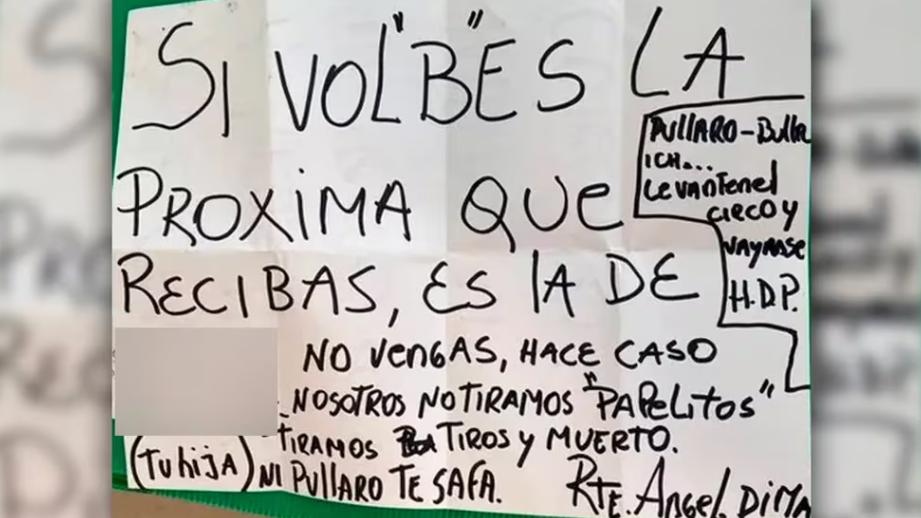 SI VOL"B"ES LA
PROXIMA QUE
RECIBAS, ES lA DE
PULLARO-Bullr
ICH...
LevanTenel
CIRCO Y
VAYANSE
H.D.P.
NO VengAS, HACE CASO
NOSOTROS NO TIRAMOS "PAPeLiTOS"
TIRAMOS TIROS y MUERTO.
(Tu hija) NI PULLARO TE SAFA.
RTE. Angel. DIMA